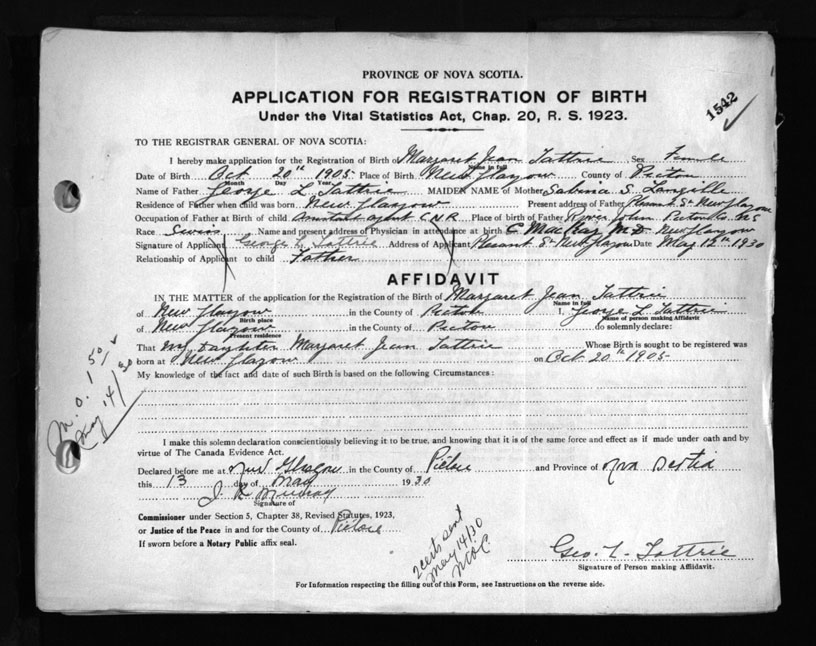 PROVINCE OF NOVA SCOTIA.
APPLICATION FOR REGISTRATION OF BIRTH
Under the Vital Statistics Act, Chap. 20, R. S. 1923.
1542
TO THE REGISTRAR GENERAL OF NOVA SCOTIA:
I hereby make application for the Registration of Birth of Margaret Jean Tattrie Sex Female
Name in full
Date of Birth Oct 20th 1905 Place of Birth New Glasgow County of Pictou
Month Day Year
Name of Father George L Tattrie MAIDEN NAME of Mother Sabina S. Langille
Residence of Father when child was born New Glasgow Present address of Father Pleasant St New Glasgow
Occupation of Father at Birth of child Assistant agent C.N.R. Place of birth of Father River John Pictou Co. NS
Race Swiss Name and present address of Physician in attendance at birth C MacKay M.D. New Glasgow
Signature of Applicant George L. Tattrie Address of Applicant Pleasant St New Glasgow Date May 12th 1930
Relationship of Applicant to child Father
AFFIDAVIT
IN THE MATTER of the application for the Registration of the Birth of Margaret Jean Tattrie
Name in full
of New Glasgow in the County of Pictou I, George L Tattrie
Birth place Name of person making Affidavit
of New Glasgow in the County of Pictou do solemnly declare:
Present residence
That my Daughter Margaret Jean Tattrie Whose Birth is sought to be registered was
born at New Glasgow on Oct 20th 1905
My knowledge of the fact and date of such Birth is based on the following Circumstances:
M. O. 1 50
May 14/30
I make this solemn declaration conscientiously believing it to be true, and knowing that it is of the same force and effect as if made under oath and by
virtue of The Canada Evidence Act.
Declared before me at New Glasgow in the County of Pictou and Province of Nova Scotia
this 13 day of May 1930
J. R. Murray
Signature of
Commissioner under Section 5, Chapter 38, Revised Statutes, 1923,
or Justice of the Peace in and for the County of Pictou
If sworn before a Notary Public affix seal.
2 certs sent
May 14/30
Geo. L. Tattrie
Signature of Person making Affidavit.
For Information respecting the filling out of this Form, see Instructions on the reverse side.